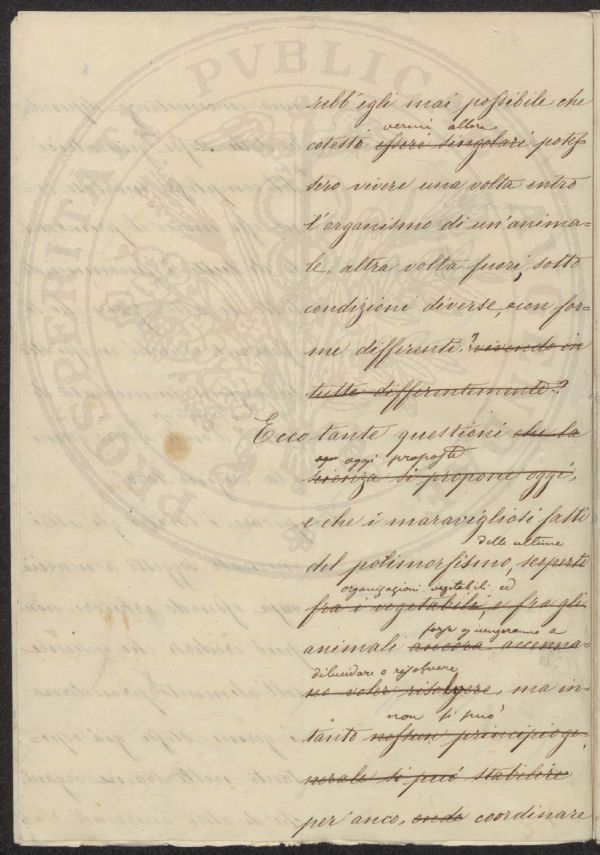 rebb'egli mai possibile che
vermi allora
cotesti esseri singolari potes-
sero vivere una volta entro
l'organismo di un'anima-
le, altra volta fuori, sotto
condizioni diverse, e con for-
me differenti? vivendo in
tutto differentemente?
Ecco tante questioni che la
oggi proposte
scienza si propone oggi,
e che i maravigliosi fatti
delle ultime
del polimorfismo, scoperti
organizzazioni vegetabili ed
fra i vegetabili, e fra gli
forse giungeranno a
animali ancora accenna-
dilucidare o risolvere
no voler risolvere, ma in-
non si può
tanto nessun principio ge-
nerale si può stabilire
per anco, onde coordinare